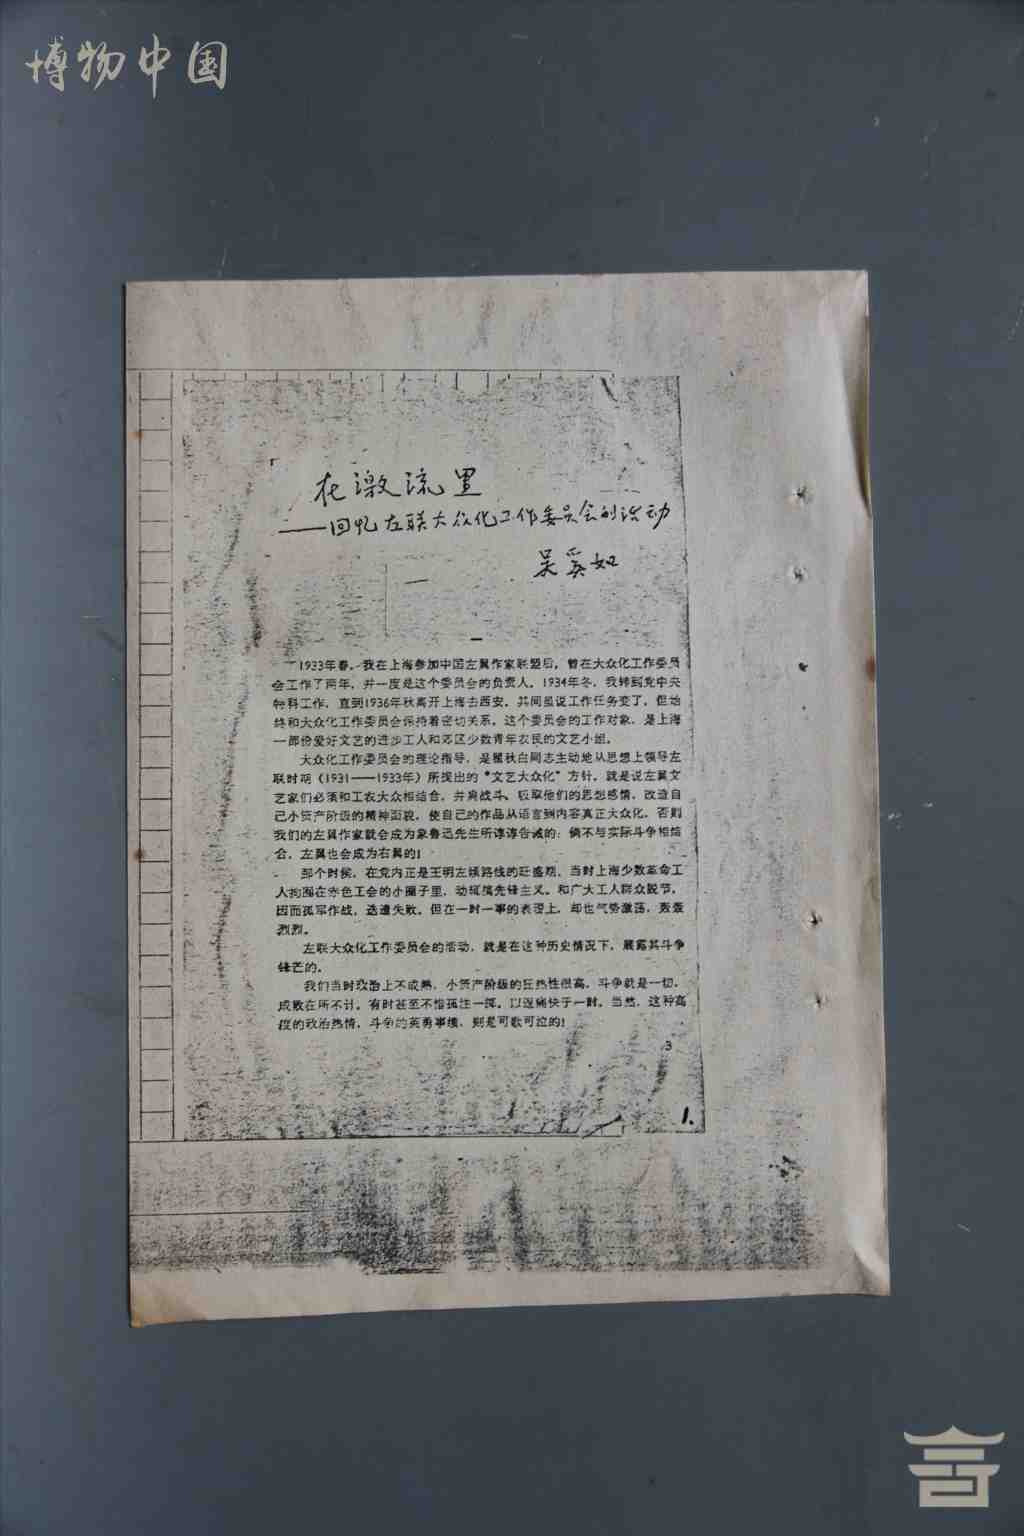 博物中国
在激流里
——回忆左联大众化工作委员会的活动
吴奚如
一
1933年春，我在上海参加中国左翼作家联盟后，曾在大众化工作委员
会工作了两年，并一度是这个委员会的负责人。1934年冬，我转到党中央
特科工作，直到1936年秋离开上海去西安，其间虽说工作任务变了，但始
终和大众化工作委员会保持着密切关系。这个委员会的工作对象，是上海
一部份爱好文艺的进步工人和郊区少数青年农民的文艺小组。
大众化工作委员会的理论指导，是瞿秋白同志主动地从思想上领导左
联时期（1931——1933年）所提出的“文艺大众化”方针，就是说左翼文
艺家们必须和工农大众相结合，并肩战斗、吸取他们的思想感情，改造自
己小资产阶级的精神面貌，使自己的作品从语言到内容真正大众化，否则
我们的左翼作家就会成为象鲁迅先生所谆谆告诫的：倘不与实际斗争相结
合，左翼也会成为右翼的！
那个时侯，在党内正是王明左倾路线的旺盛期，当时上海少数革命工
人拘囿在赤色工会的小圈子里，动辄搞先锋主义，和广大工人群众脱节，
因而孤军作战，迭遭失败。但在一时一事的表现上，却也气势激荡，轰轰
烈烈。
左联大众化工作委员会的活动，就是在这种历史情况下，展露其斗争
锋芒的。
我们当时政治上不成熟，小资产阶级的狂热性很高，斗争就是一切，
成败在所不计，有时甚至不惜孤注一掷，以逞痛快于一时。当然，这种高
度的政治热情，斗争的英勇事绩，则是可歌可泣的！
3
1.